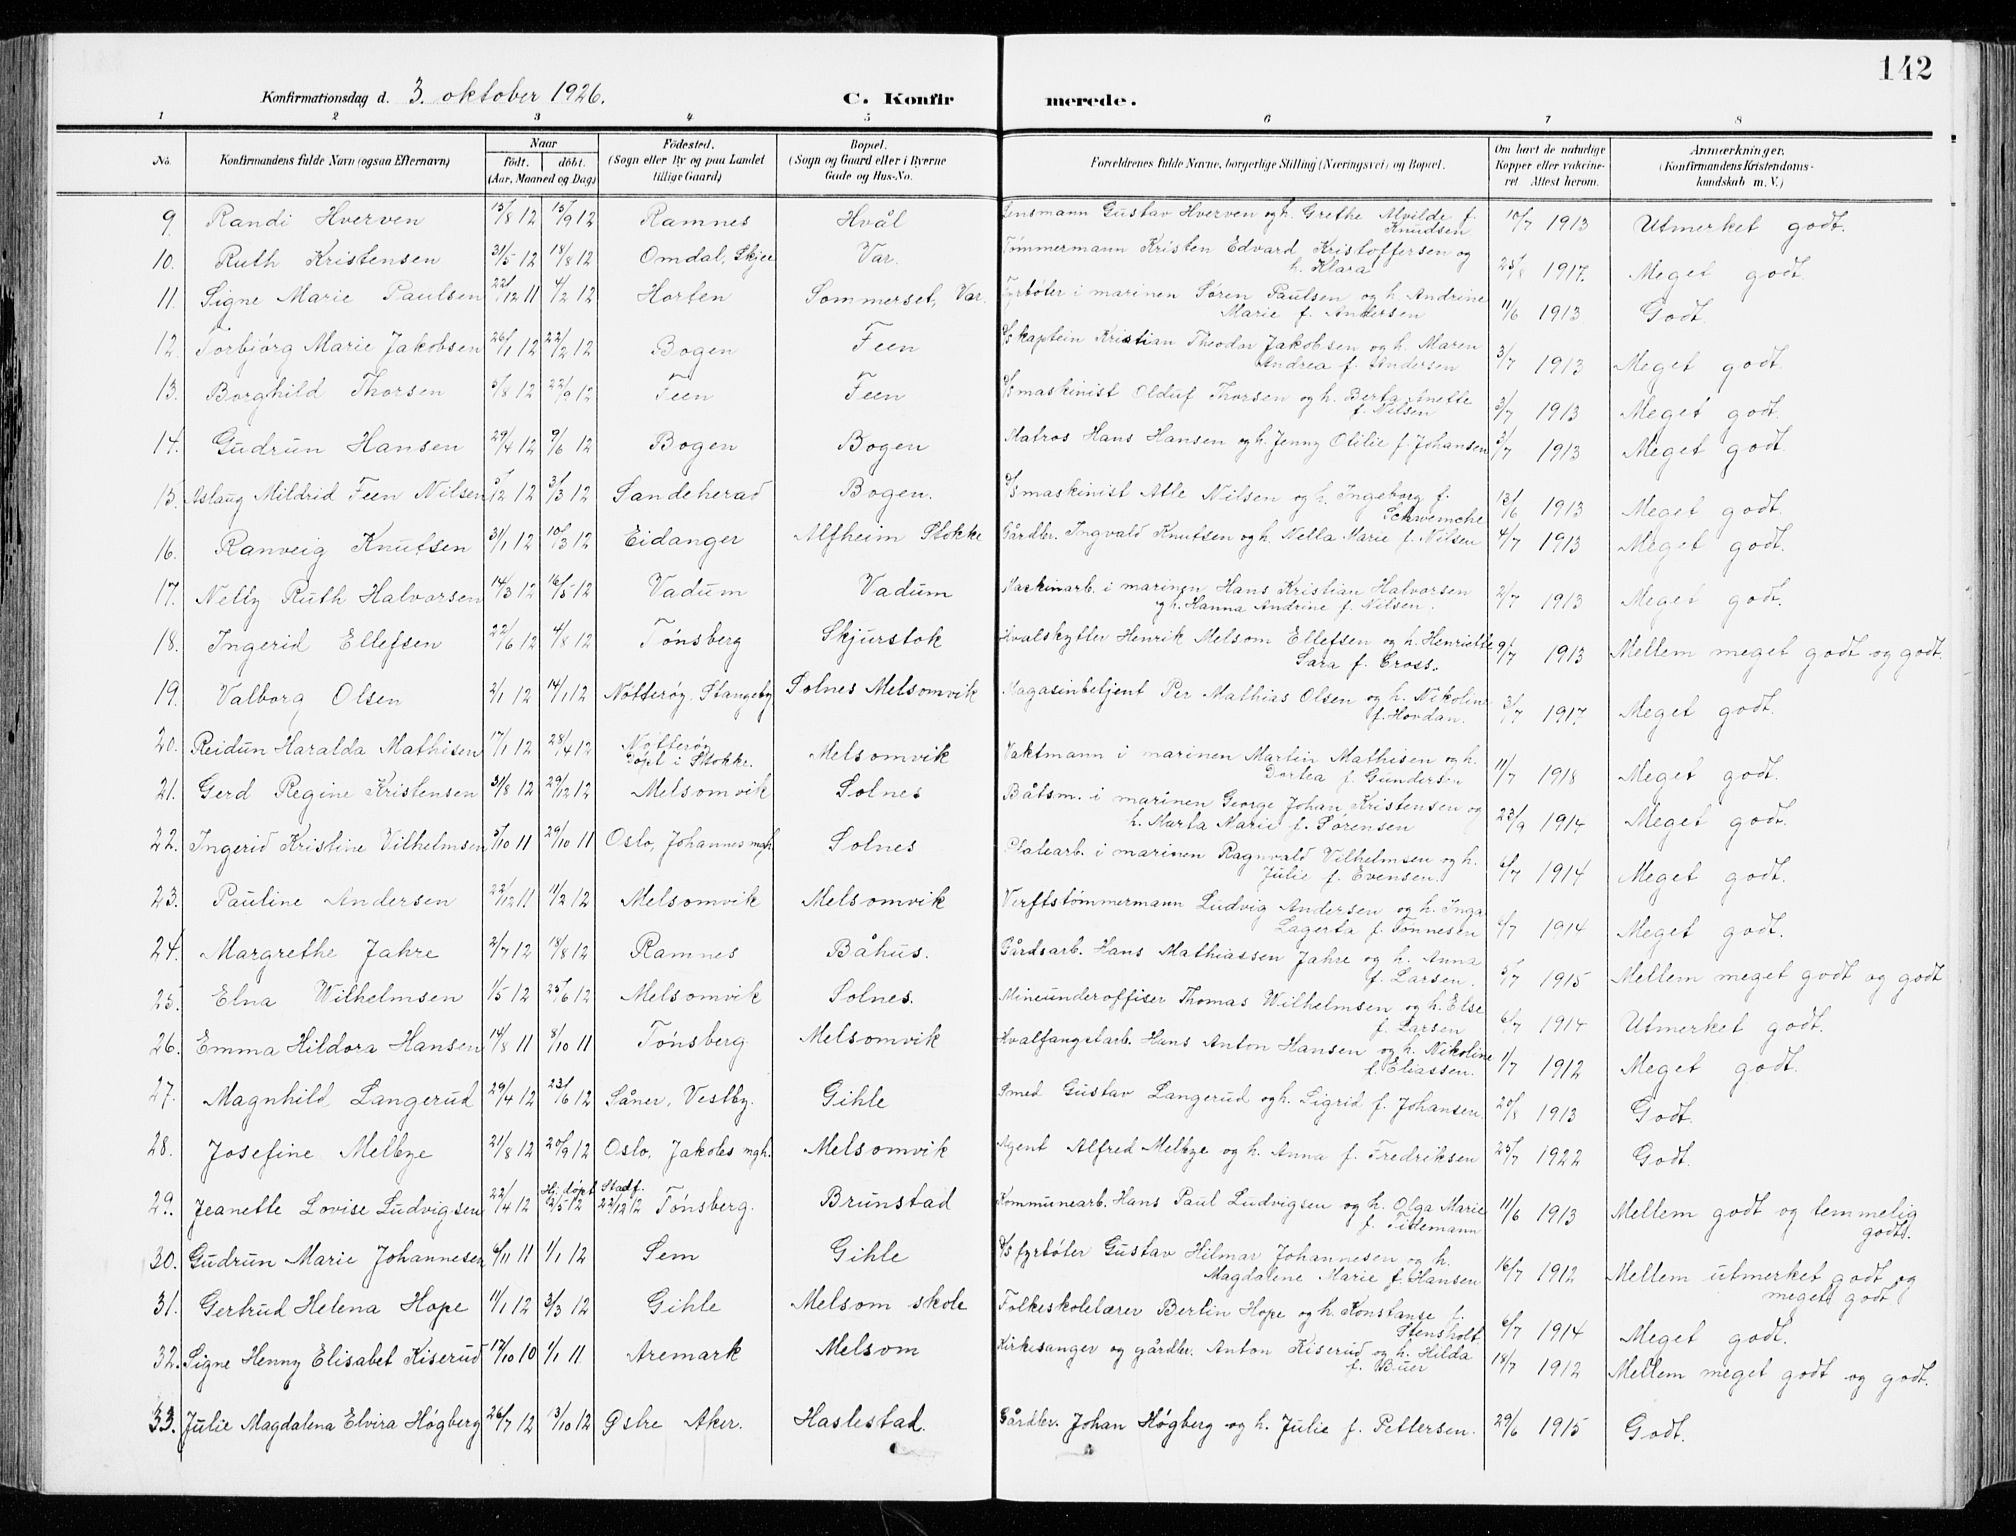 142
Konfirmationsdag d. 3. oktober 1926.
C. Konfir merede.
1 2 3 4 5 6 7 8
No. Konfirmandens fulde Navn (ogsaa Efternavn) Naar født. døbt. (Aar, Maaned og Dag) Fødested. (Sogn eller By og paa Landet tillige Gaard) Bopæl. (Sogn og Gaard eller i Byerne Gade og Hus-No. Forældrenes fulde Navne, borgerlige Stilling (Næringsvei) og Bopæl. Om havt de naturlige Kopper eller vaccineret Attest herom. Anmærkninger. (Konfirmandens Kristendomskundskab m. V.)
9. Randi Hverven 13/8 12 15/9 12 Ramnes Hvål Lensmann Gustav Hverven og h. Grethe Alvilde f. Knudsen 10/7 1913 Utmerket godt.
10. Ruth Kristensen 31/5 12 18/8 12 Omdal, Skjee Var. Tømmermann Kristen Edvard Kristoffersen og h. Klara 25/8 1917. Meget godt.
11. Signe Marie Paulsen 22/12 11 4/2 12 Horten Sommerset, Var. Fyrbøter i marinen Søren Paulsen og h. Andrine Marie f. Andersen 11/6 1913 Godt.
12. Torbjørg Marie Jakobsen 26/1 12 22/2 12 Bogen Feen D/s kaptein Kristian Theodor Jakobsen og h. Maren Andrea f. Andersen 3/7 1913 Meget godt.
13. Borghild Thorsen 5/8 12 22/9 12 Feen Feen D/s maskinist Olduf Thorsen og h. Berta Anette f. Nilsen 3/7 1913 Meget godt.
14. Gudrun Hansen 29/4 12 9/6 12 Bogen Bogen Matros Hans Hansen og h. Jenny Otilie f. Johansen 3/7 1913 Meget godt.
15. Aslaug Mildrid Feen Nilsen 5/2 12 3/3 12 Sandeherad Bogen. D/s maskinist Atle Nilsen og h. Ingeborg f. Schwencke 13/6 1913 Meget godt.
16. Ranveig Knutsen 31/1 12 10/3 12 Eidanger Alfheim Stokke Gårdbr. Ingvald Knutsen og h. Nella Marie f. Nilsen 4/7 1913 Meget godt.
17. Nelly Ruth Halvorsen 14/3 12 16/5 12 Vadum Vadum Maskinarb. i marinen Hans Kristian Halvorsen og h. Hanna Andrine f. Nilsen. 2/7 1913 Meget godt.
18. Ingerid Ellefsen 22/6 12 4/8 12 Tønsberg Skjurstok Hvalskytter Henrik Melsom Ellefsen og h. Henriette Sara f. Cross. 9/7 1913 Mellem meget godt og godt.
19. Valborg Olsen 2/1 12 14/1 12 Nøtterøy. Stangeby Solnes Melsomvik Magasinbetjent Per Mathias Olsen og h. Nikoline f. Hovdan. 3/7 1917. Meget godt.
20. Reidun Haralda Mathisen 17/1 12 28/4 12 Nøtterøy Døpt i Stokke. Melsomvik Vaktmann i marinen Martin Mathisen og h. Dortea f. Gundersen 11/7 1918 Meget godt.
21. Gerd Regine Kristensen 31/8 12 29/12 12 Melsomvik Solnes Båtsm. i marinen George Johan Kristensen og h. Marta Marie f. Sørensen 23/9 1914 Meget godt.
22. Ingerid Kristine Vilhelmsen 5/10 11 29/10 11 Oslo, Johannes mgh. Solnes Platearb. i marinen Ragnvald Vilhelmsen og h. Julie f. Evensen. 6/7 1914 Meget godt.
23. Pauline Andersen 22/12 11 11/2 12 Melsomvik Melsomvik Verftstømmermann Ludvig Andersen og h. Inga Lagerta f. Tønnesen 6/7 1914 Meget godt.
24. Margrethe Jahre 2/7 12 18/8 12 Ramnes Båhus. Gårdsarb. Hans Mathiassen Jahre og h. Anna f. Larsen. 5/7 1915 Mellem meget godt og godt
25. Elna Wilhelmsen 1/5 12 25/6 12 Melsomvik Solnes. Mineunderoffiser Thomas Wilhelmsen og h. Else f. Larsen 6/7 1914 Utmerket godt.
26. Emma Hildora Hansen 14/8 11 8/10 11 Tønsberg Melsomvik Hvalfangstarb. Hans Anton Hansen og h. Nikoline f. Eliassen. 1/7 1912 Meget godt.
27. Magnhild Langerud 29/4 12 23/6 12 Såner, Vestby. Gihle Smed Gustav Langerud og h. Sigrid f. Johansen. 20/8 1913 Godt.
28. Josefine Melbye 21/8 12 20/9 12 Oslo, Jakobs mgh. Melsomvik Agent Alfred Melbye og h. Anna f. Fredriksen 25/7 1922 Godt.
29. Jeanette Lovise Ludvigsen 22/4 12 Hj. døpt 12/5 12 Stadf. 22/12 12 Tønsberg. Brunstad Kommunearb. Hans Paul Ludvigsen og h. Olga Marie f. Tidemann 11/6 1913 Mellem godt og temmelig godt.
30. Gudrun Marie Johannesen 6/11 11 1/1 12 Sem Gihle D/s fyrbøter Gustav Hilmar Johannesen og h. Magdalene Marie f. Hansen 16/7 1912 Mellem utmerket godt og meget godt
31. Gertrud Helena Hope 11/1 12 3/3 12 Gihle Melsom skole Folkeskolelærer Bertin Hope og h. Konstanse f. Stensholt 6/7 1914 Meget godt.
32. Signe Henny Elisabet Kiserud 17/10 10 1/1 11 Aremark Melsom Kirkesanger og gårdbr. Anton Kiserud og h. Hilda f. Buer 18/7 1912 Mellem meget godt og godt.
33. Julie Magdalena Elvira Høgberg 26/7 12 13/10 12 Østre Aker. Haslestad. Gårdbr. Johan Høgberg og h. Julie f. Pettersen. 29/6 1915 Godt.